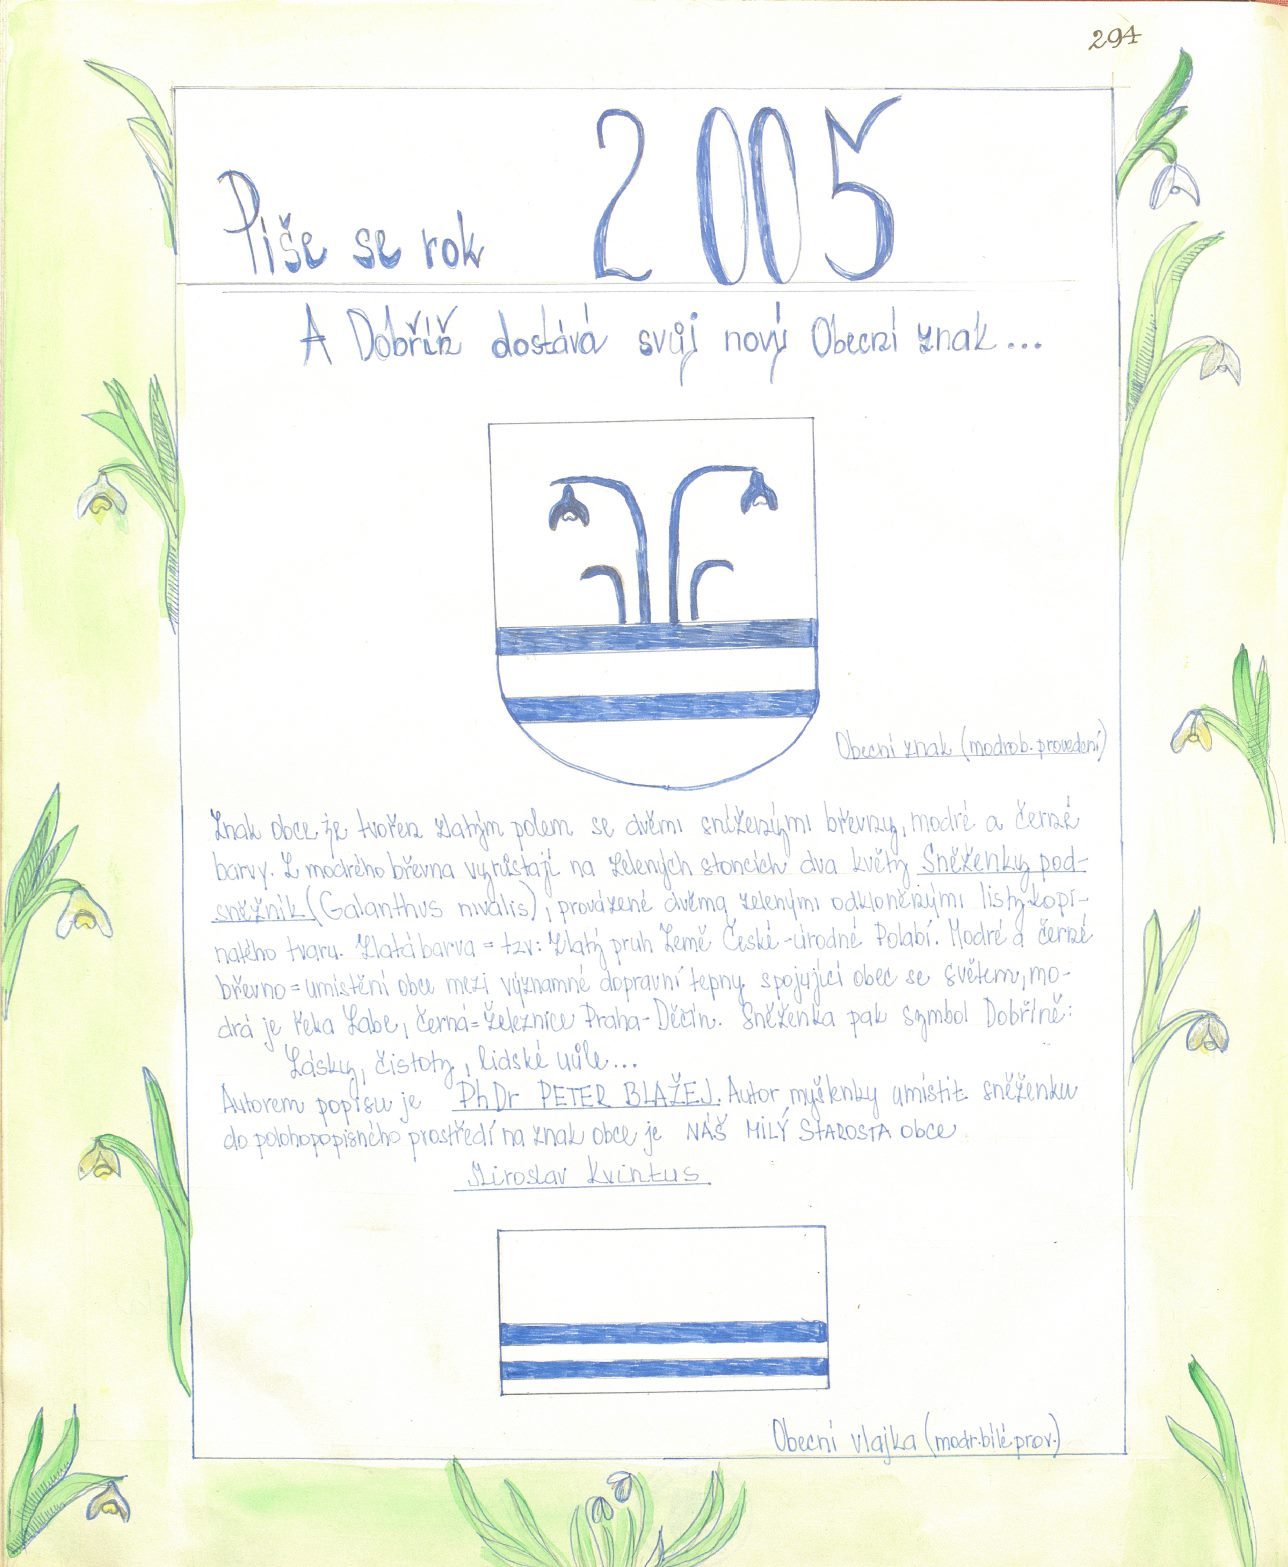 294
Píše se rok 2005
A Dobříň dostává svůj nový Obecní znak...
Obecní znak (modrob. provedení)
Znak obce je tvořen zlatým polem se dvěmi sníženými břevny, modré a černé
barvy. Z modrého břevna vyrůstají na zelených stoncích dva květy Sněženky pod-
sněžník (Galanthus nivalis), provázené dvěma zelenými odkloněnými listy kopi-
natého tvaru. Zlatá barva = tzv: Zlatý pruh Země České - úrodné Polabí. Modré a černé
břevno = umístění obce mezi významné dopravní tepny spojující obec se světem, mo-
drá je řeka Labe, černá = železnice Praha - Děčín. Sněženka pak symbol Dobříně:
Lásky, čistoty, lidské vůle...
Autorem popisu je PhDr PETER BLAŽEJ. Autor myšlenky umístit sněženku
do polohopopisného prostředí na znak obce je NÁŠ MILÝ STAROSTA obce
Miroslav Kvintus.
Obecní vlajka (modr. bílé prov.)